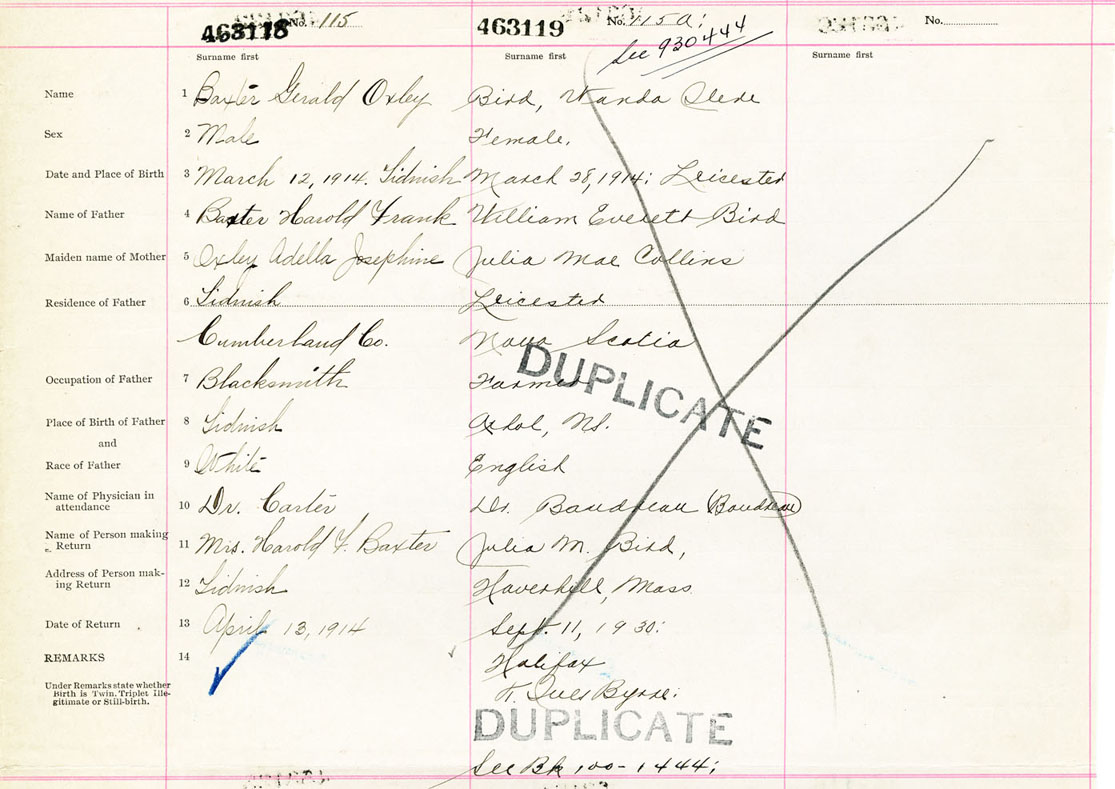 463118 No. 115 463119 No. 115a; No.
See 930444
Surname first Surname first Surname first
Name 1 Baxter Gerald Oxley Bird, Wanda
Sex 2 Male Female.
Date and Place of Birth 3 March 12, 1914. Tidnish March 28, 1914; Leicester
Name of Father 4 Baxter Harold Frank William Everett Bird
Maiden name of Mother 5 Oxley Adella Josephine Julia Mae Collins
Residence of Father 6 Tidnish Leicester
Cumberland Co. Nova Scotia
Occupation of Father 7 Blacksmith Farmer
DUPLICATE
Place of Birth of Father 8 Tidnish NS.
and
Race of Father 9 White English
Name of Physician in
attendance 10 Dr. Carter Dr. Baudreau (Boudreau)
Name of Person making
Return 11 Mrs. Harold F. Baxter Julia M. Bird,
Address of Person mak-
ing Return 12 Tidnish Haverhill, Mass.
Date of Return 13 April 13, 1914 Sept. 11, 1930;
REMARKS 14 Halifax
Under Remarks state whether
Birth is Twin. Triplet Ille-
gitimate or Still-birth.
Byrne;
DUPLICATE
See Bk 100-1444;